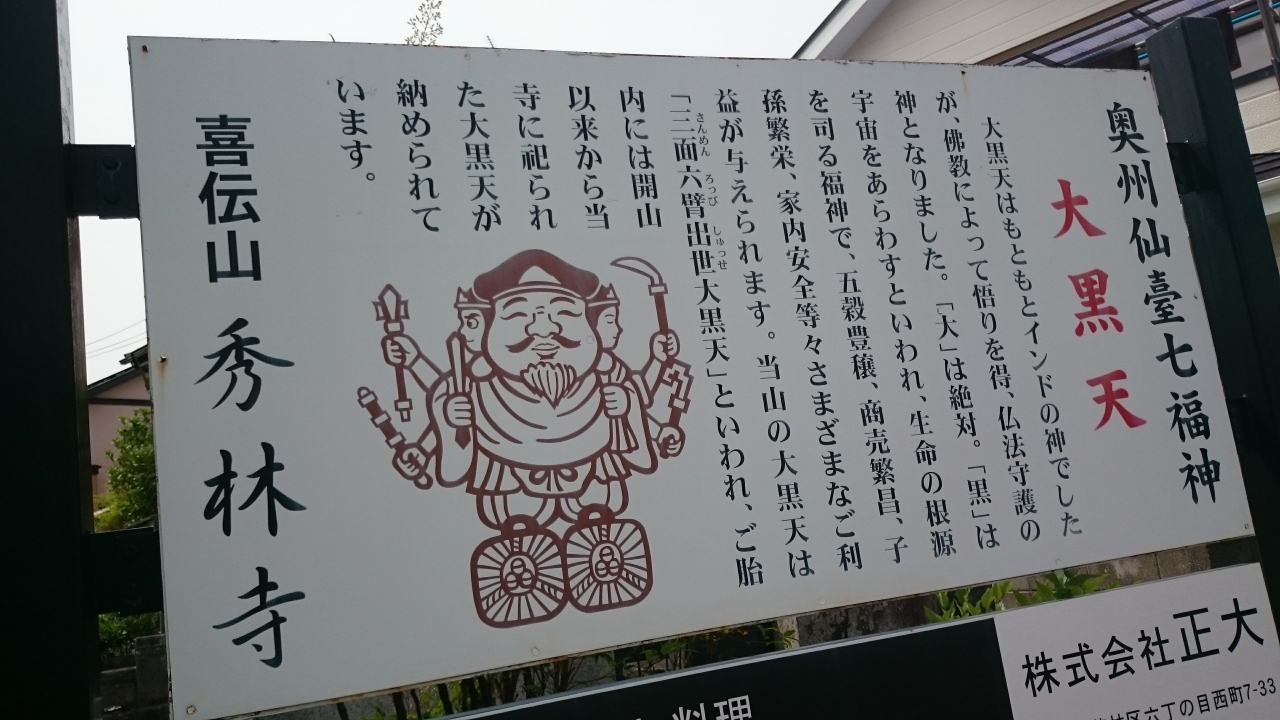 奥州仙臺七福神
大黒天
大黒天はもともとインドの神でした
が、佛教によって悟りを得、仏法守護の
神となりました。「大」は絶対。「黒」は
宇宙をあらわすといわれ、生命の根源
を司る福神で、五穀豊穣、商売繁昌、子
孫繁栄、家内安全等々さまざまなご利
益が与えられます。当山の大黒天は
「三面六臂出世大黒天」といわれ、ご胎
さんめん ろっぴ しゅっせ
内には開山
以来から当
寺に祀られ
た大黒天が
納められて
います。
喜伝山 秀林寺
料理
株式会社正大
林区六丁の目西町7-33